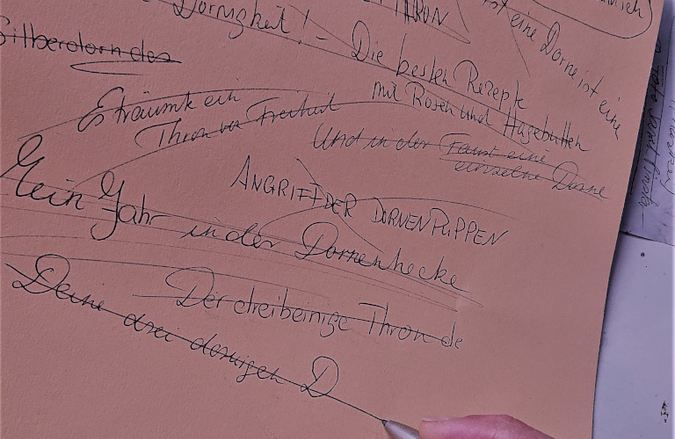 Dornigkeit! -
THRON
ist eine Dorne ist eine
Silberdorn des
Die besten Rezepte
mit Rosen und Hagebutten
Es träumte ein
Thron von Freiheit
Und in der Faust eine
einzelne Dorne
ANGRIFF DER DORNENPUPPEN
Mein Jahr in der Dornenhecke
Der dreibeinige Thron de
Deine drei dornigen D